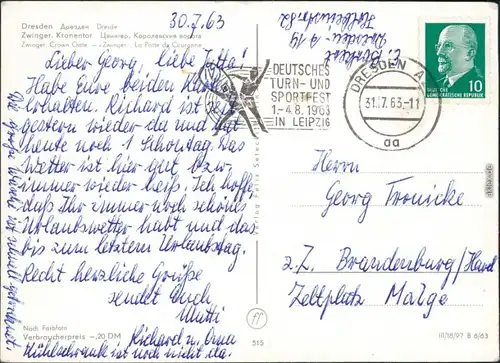 Dresden Дрезден Dresde
Zwinger, Kronentor Цвингер, Королевские ворота
Zwinger, Crown Gate — Zwinger, La Porte de Couronne
30.7.63
Lieber Georg, liebe Jutta!
Habe Eure beiden Karten
erhalten. Richard ist seit
gestern wieder da und hat
heute noch 1 Schontag. Das
Wetter ist hier gut, bzw.
immer wieder heiß. Ich hoffe,
daß Ihr immer noch schönes
Urlaubswetter habt und das
bis zum letztem Urlaubstag.
Recht herzliche Grüße
sendet Euch
Mutti
Richard u. Oma
Kühlschrank ist noch nicht da.
Nach Farbfoto
Verbraucherpreis –,20 DM
515
DEUTSCHES
TURN- UND
SPORTFEST
1.-4.8.1963
IN LEIPZIG
DRESDEN A
31.7.63-11
aa
Dresden A 19
10
DEUTSCHE
DEMOKRATISCHE REPUBLIK
Herrn
Georg Fronicke
z.Z. Brandenburg/Havel
Zeltplatz Malge
III/18/97 B 6/63